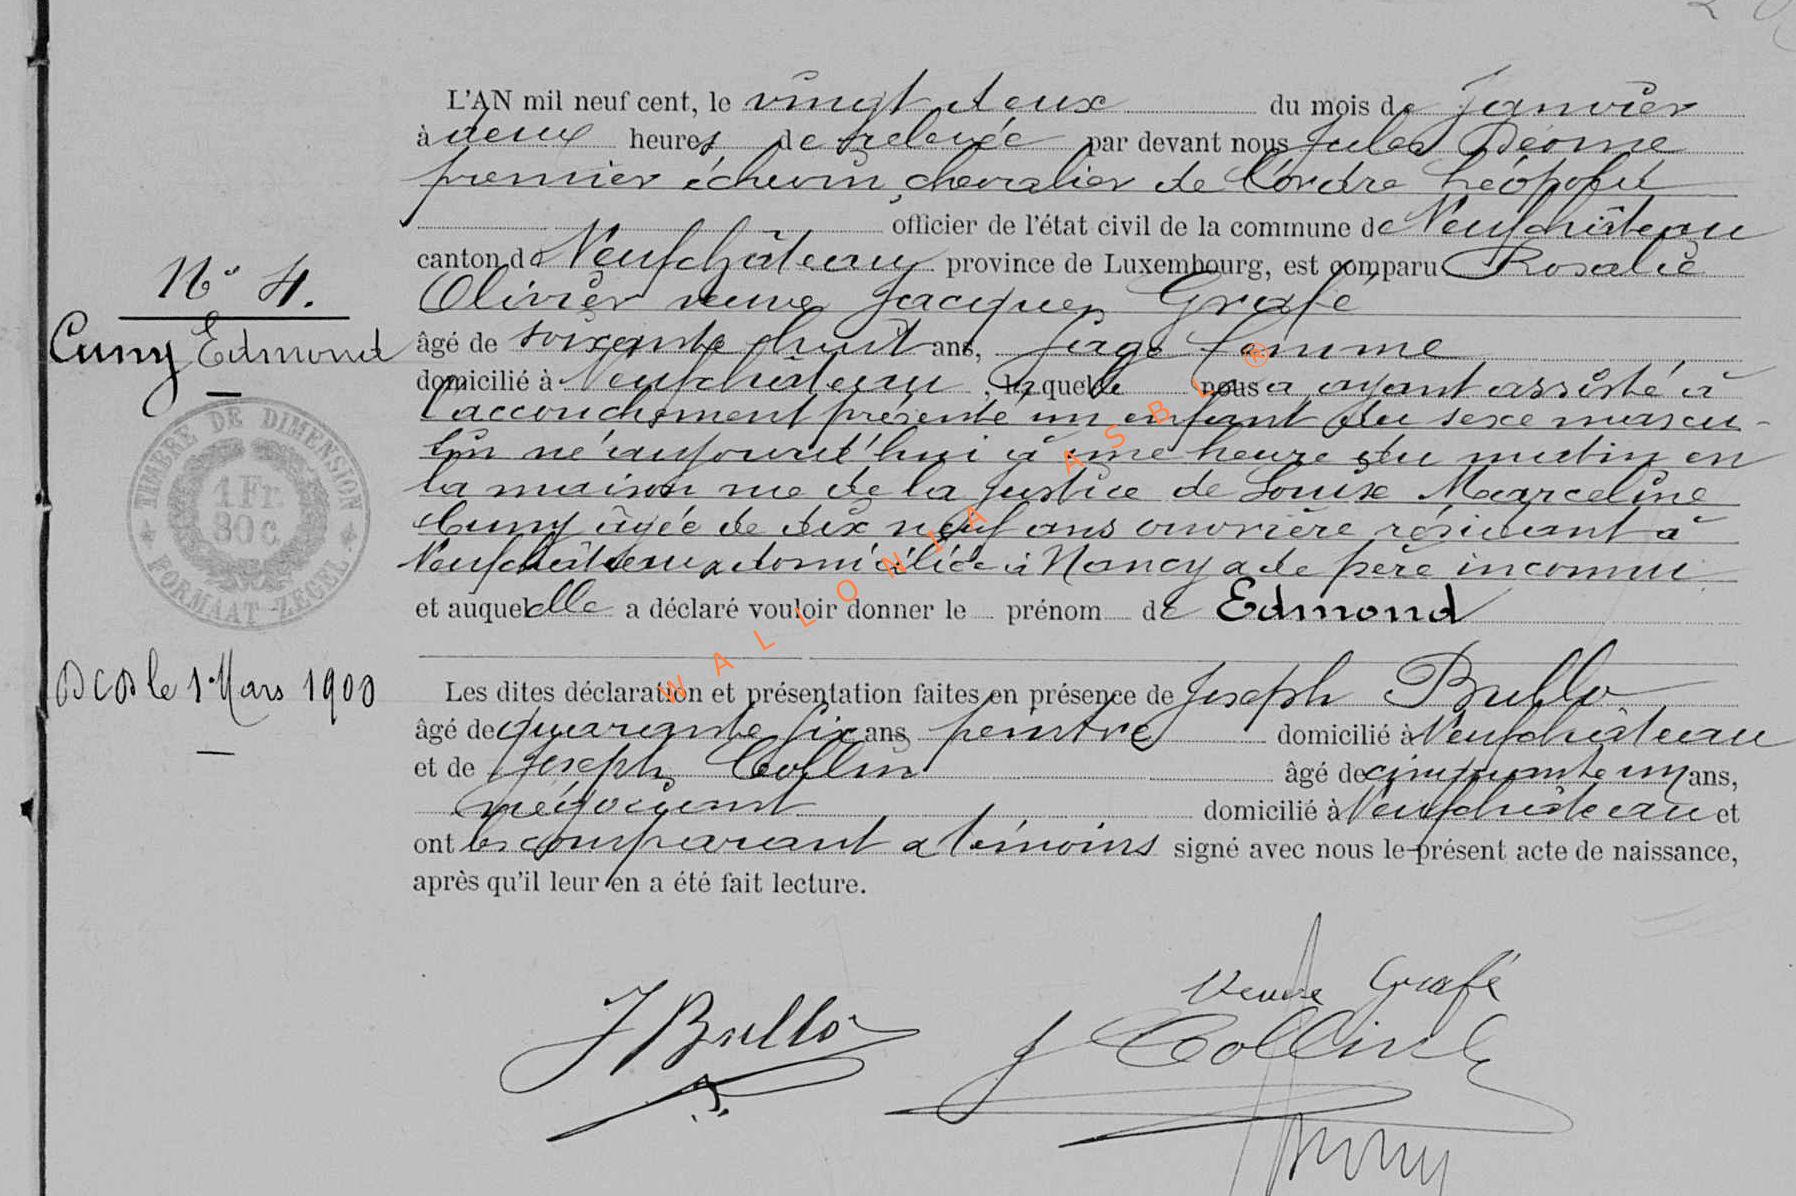 L'AN mil neuf cent, le vingt deux du mois de Janvier
à deux heures de relevée par devant nous Jules Déome
premier échevin, chevalier de l'ordre Léopold
officier de l'état civil de la commune de Neufchâteau
canton de Neufchâteau province de Luxembourg, est comparu Rosalie
N° 4.
Olivier veuve Jacques Grafé
Cuny Edmond
âgé de soixante huit ans, sage femme
domicilié à Neufchâteau, laquelle nous a ayant assisté à
l'accouchement présenté un enfant du sexe mascu-
lin né aujourd'hui à une heure du matin en
la maison rue de la Justice de Louise Marceline
Cuny âgée de dix neuf ans ouvrière résidant à
Neufchâteau domiciliée à Nancy & de père inconnu
TIMBRE DE DIMENSION
1 Fr.
80 c.
FORMAAT-ZEGEL
et auquel elle a déclaré vouloir donner le prénom de Edmond
DCD le 1 Mars 1900
Les dites déclaration et présentation faites en présence de Joseph Brullo
âgé de quarante six ans peintre domicilié à Neufchâteau
et de Joseph Collin âgé de cinquante un ans,
négociant domicilié à Neufchâteau et
ont les comparant & témoins signé avec nous le présent acte de naissance,
après qu'il leur en a été fait lecture.
Veuve Grafé
J Brullo
J Collin
WALLONIA ASBL ®